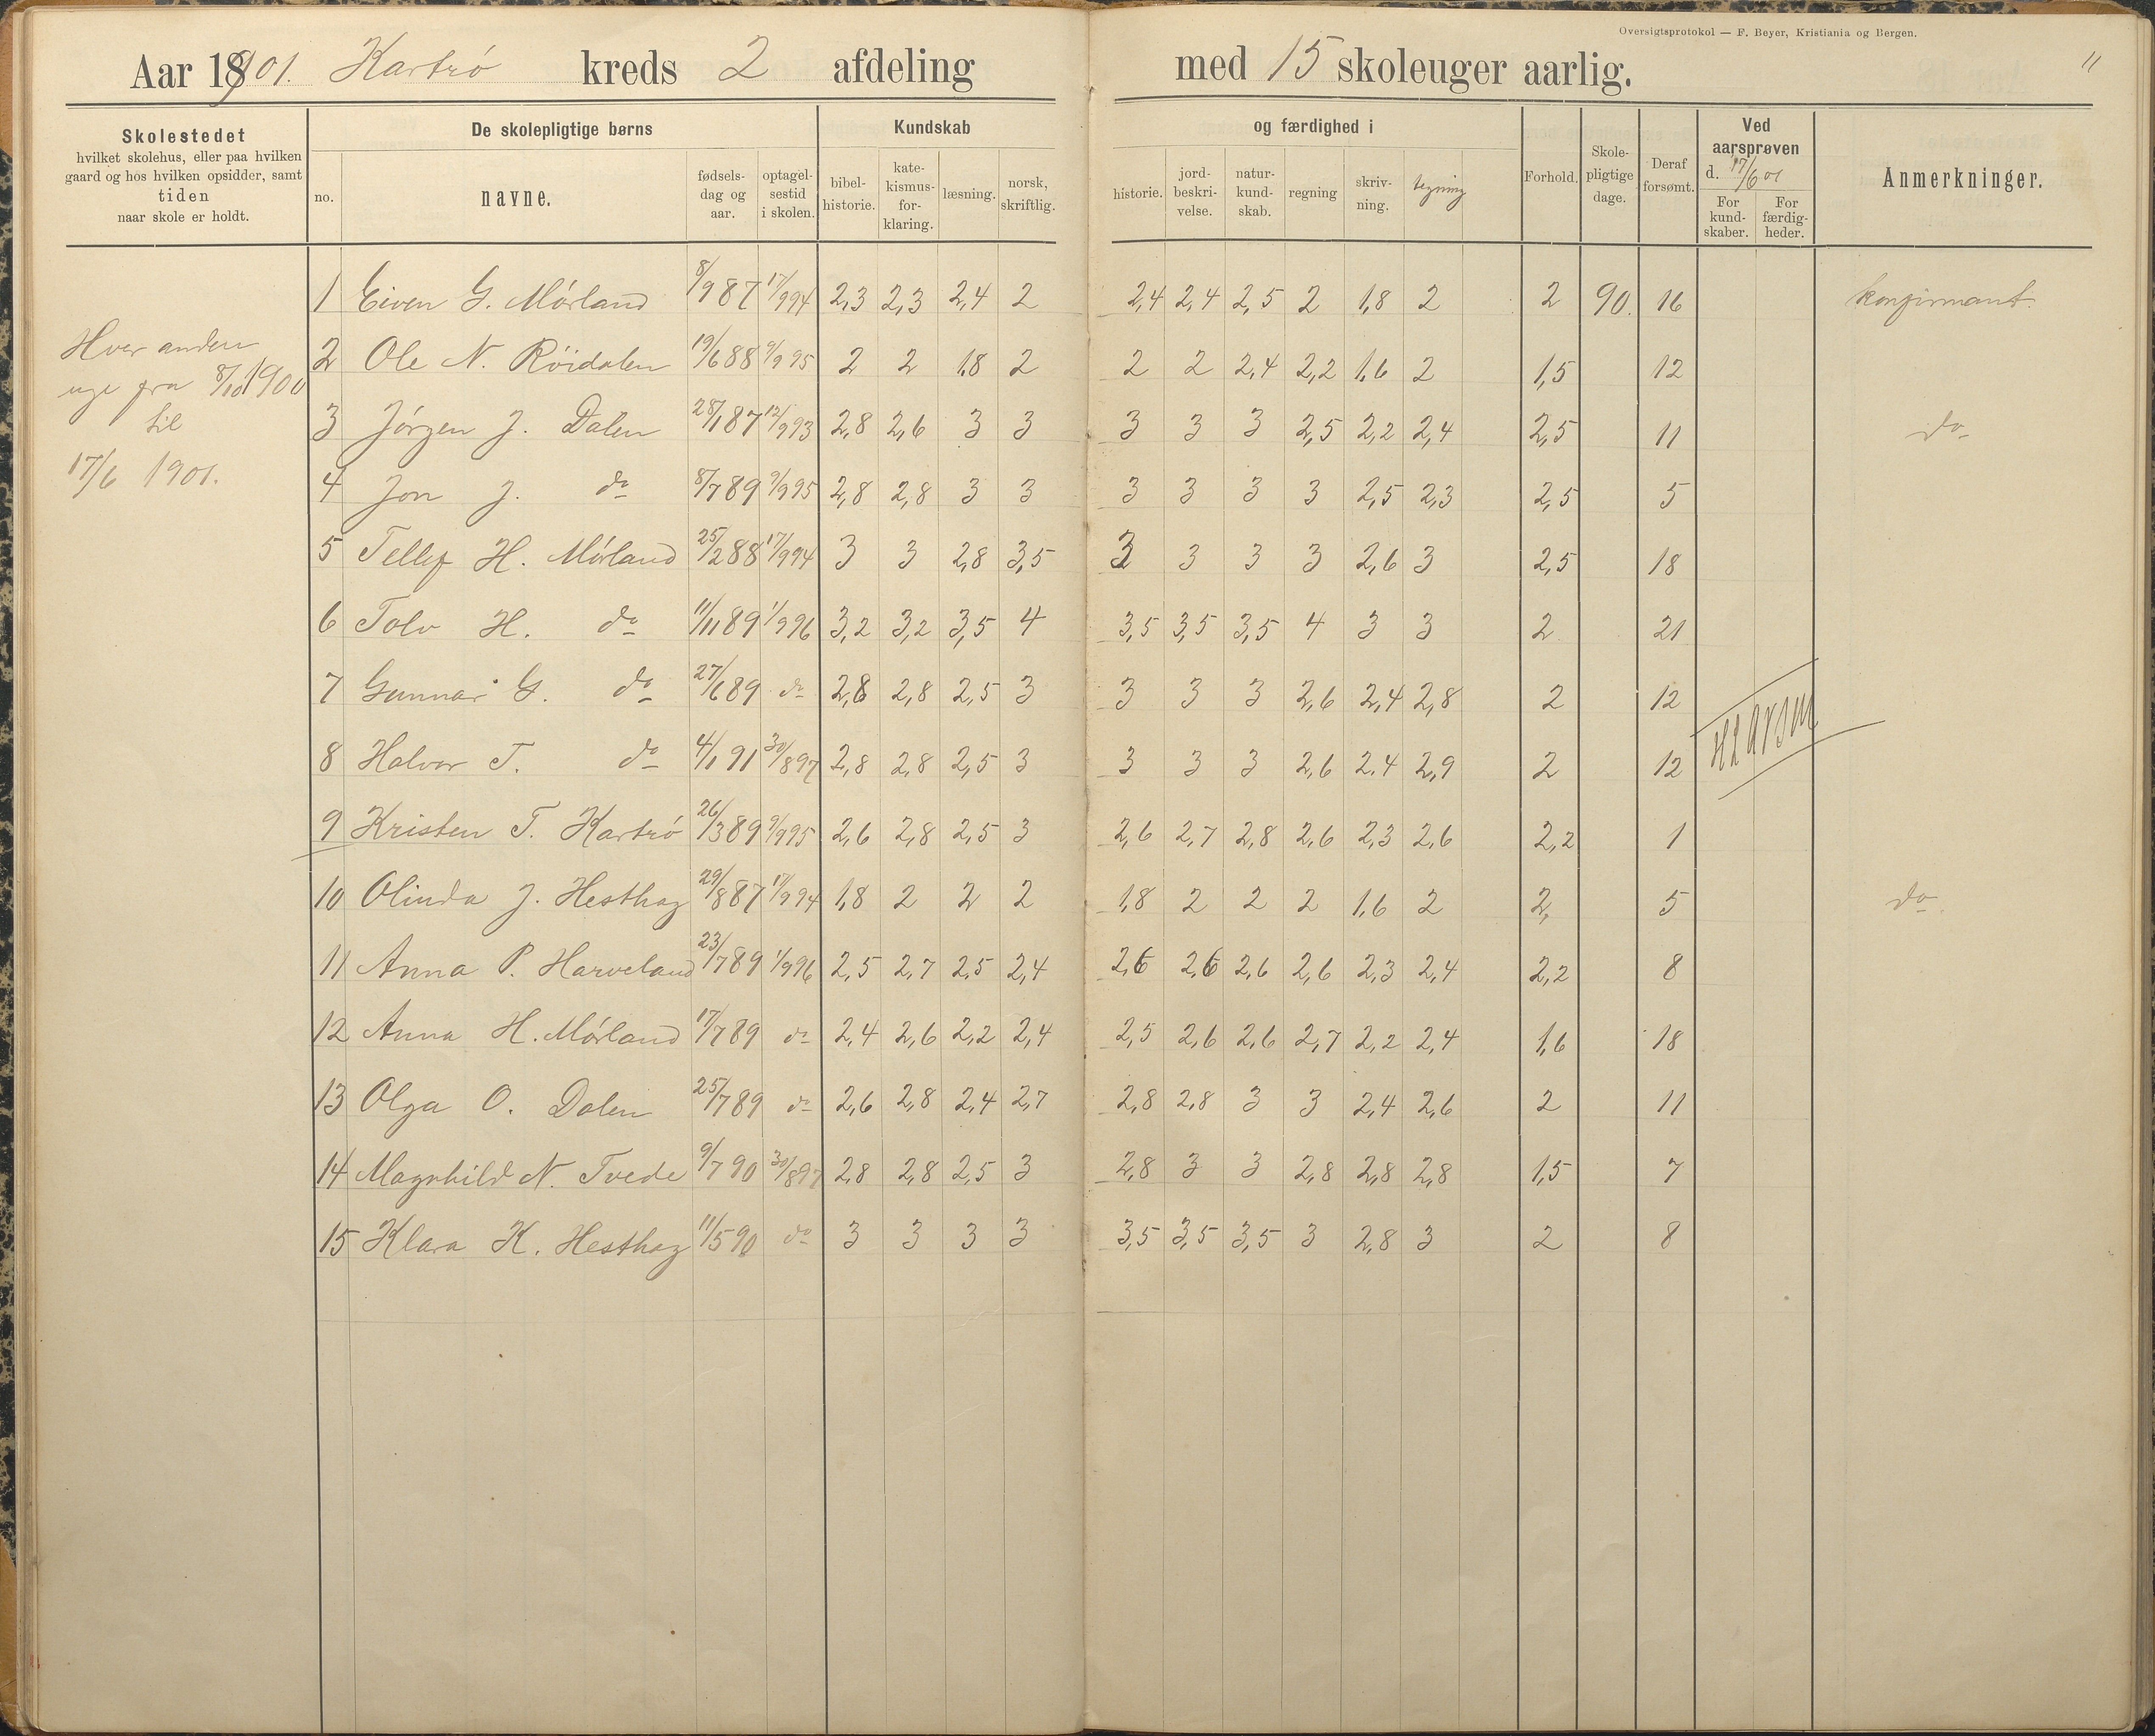 Oversigtsprotokol — F. Beyer, Kristiania og Bergen.
11
Aar 1901. Kartrö kreds 2 afdeling med 15 skoleuger aarlig.
Skolestedet
hvilket skolehus, eller paa hvilken
gaard og hos hvilken opsidder, samt
tiden
naar skole er holdt.
De skolepligtige børns
no.
navne.
fødsels-
dag og
aar.
optagel-
sestid
i skolen.
Kundskab
bibel-
historie.
kate-
kismus-
for-
klaring.
læsning.
norsk,
skriftlig.
og færdighed i
historie.
jord-
beskri-
velse.
natur-
kund-
skab.
regning
skriv-
ning.
tegning
Forhold.
Skole-
pligtige
dage.
Deraf
forsømt.
Ved
aarsprøven
d. 17/6 01
For
kund-
skaber.
For
færdig-
heder.
Anmerkninger.
Hver anden
uge fra 8/10 1900
til
17/6 1901.
1 Eiven G. Mörland 8/9 87 17/9 94 2,3 2,3 2,4 2 2,4 2,4 2,5 2 1,8 2 2 90. 16 konfirmant.
2 Ole N. Röidalen 19/6 88 9/9 95 2 2 1,8 2 2 2 2,4 2,2 1,6 2 1,5 12
3 Jörgen J. Dalen 28/1 87 12/9 93 2,8 2,6 3 3 3 3 3 2,5 2,2 2,4 2,5 11 do
4 Jon J. do 8/7 89 9/9 95 2,8 2,8 3 3 3 3 3 3 2,5 2,3 2,5 5
5 Tellef H. Mörland 25/2 88 17/9 94 3 3 2,8 3,5 3 3 3 3 2,6 3 2,5 18
6 Tolv H. do 11/11 89 1/9 96 3,2 3,2 3,5 4 3,5 3,5 3,5 4 3 3 2 21
7 Gunnar G. do 27/6 89 do 2,8 2,8 2,5 3 3 3 3 2,6 2,4 2,8 2 12
8 Halvor T. do 4/1 91 30/8 97 2,8 2,8 2,5 3 3 3 3 2,6 2,4 2,9 2 12
9 Kristen T. Kartrö 26/3 89 9/9 95 2,6 2,8 2,5 3 2,6 2,7 2,8 2,6 2,3 2,6 2,2 1
10 Olinda J. Hesthag 29/8 87 17/9 94 1,8 2 2 2 1,8 2 2 2 1,6 2 2, 5 do.
11 Anna P. Harveland 23/7 89 1/9 96 2,5 2,7 2,5 2,4 2,6 2,6 2,6 2,6 2,3 2,4 2,2 8
12 Anna H. Mörland 17/7 89 do 2,4 2,6 2,2 2,4 2,5 2,6 2,6 2,7 2,2 2,4 1,6 18
13 Olga O. Dalen 25/7 89 do 2,6 2,8 2,4 2,7 2,8 2,8 3 3 2,4 2,6 2 11
14 Magnhild N. Tvede 9/7 90 30/8 97 2,8 2,8 2,5 3 2,8 3 3 2,8 2,8 2,8 1,5 7
15 Klara K. Hesthag 11/5 90 do 3 3 3 3 3,5 3,5 3,5 3 2,8 3 2 8